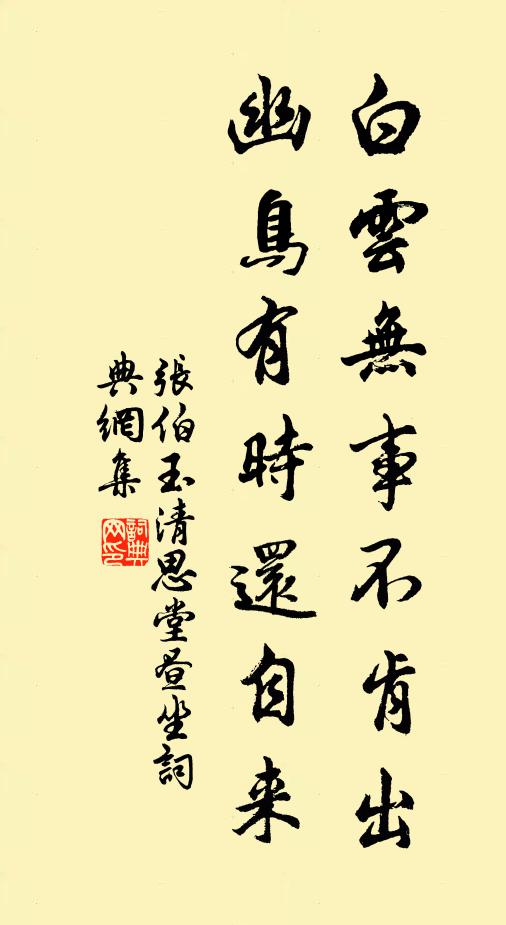 白雲無事不肯出
幽鳥有時還自来
張伯玉清思堂昼坐詞
典網集
詞典网印